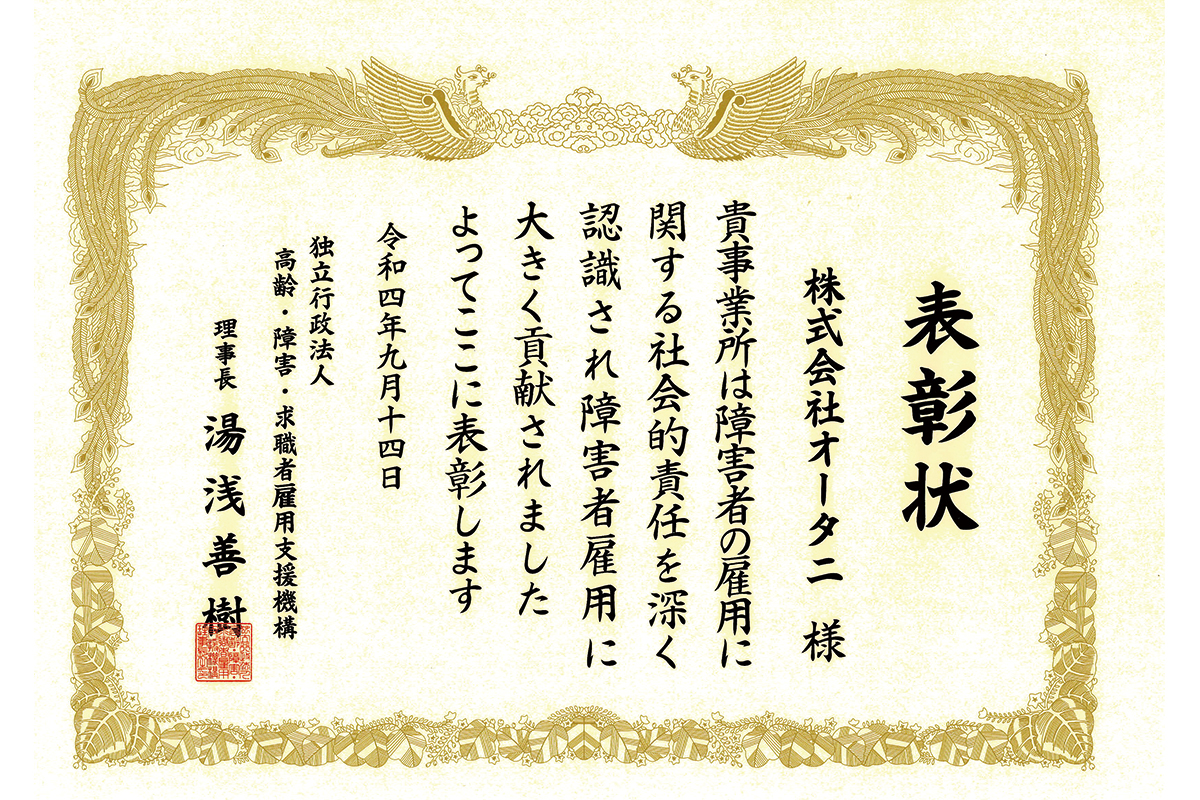 表彰状
株式会社オータニ 様
貴事業所は障害者の雇用に
関する社会的責任を深く
認識され障害者雇用に
大きく貢献されました
よってここに表彰します
令和四年九月十四日
独立行政法人
高齢・障害・求職者雇用支援機構
理事長 湯浅善樹